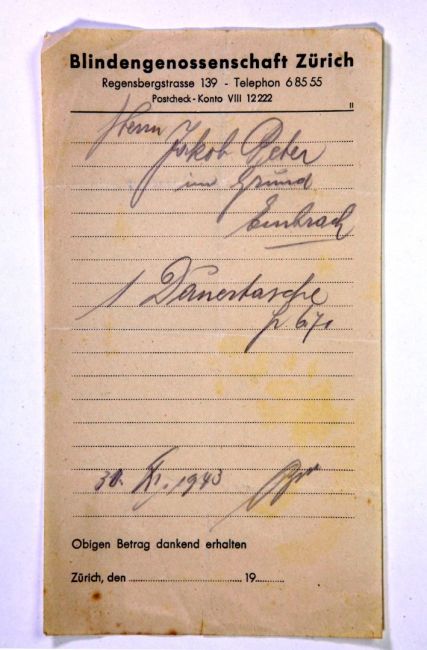 Blindengenossenschaft Zürich
Regensbergstrasse 139 - Telephon 6 85 55
Postcheck - Konto VIII 12 222
Herrn Jakob Peter
im Grund
Embrach
1 Dauertasche
fr. 6.70
30. XI. 1943
Obigen Betrag dankend erhalten
Zürich, den ........................ 19........